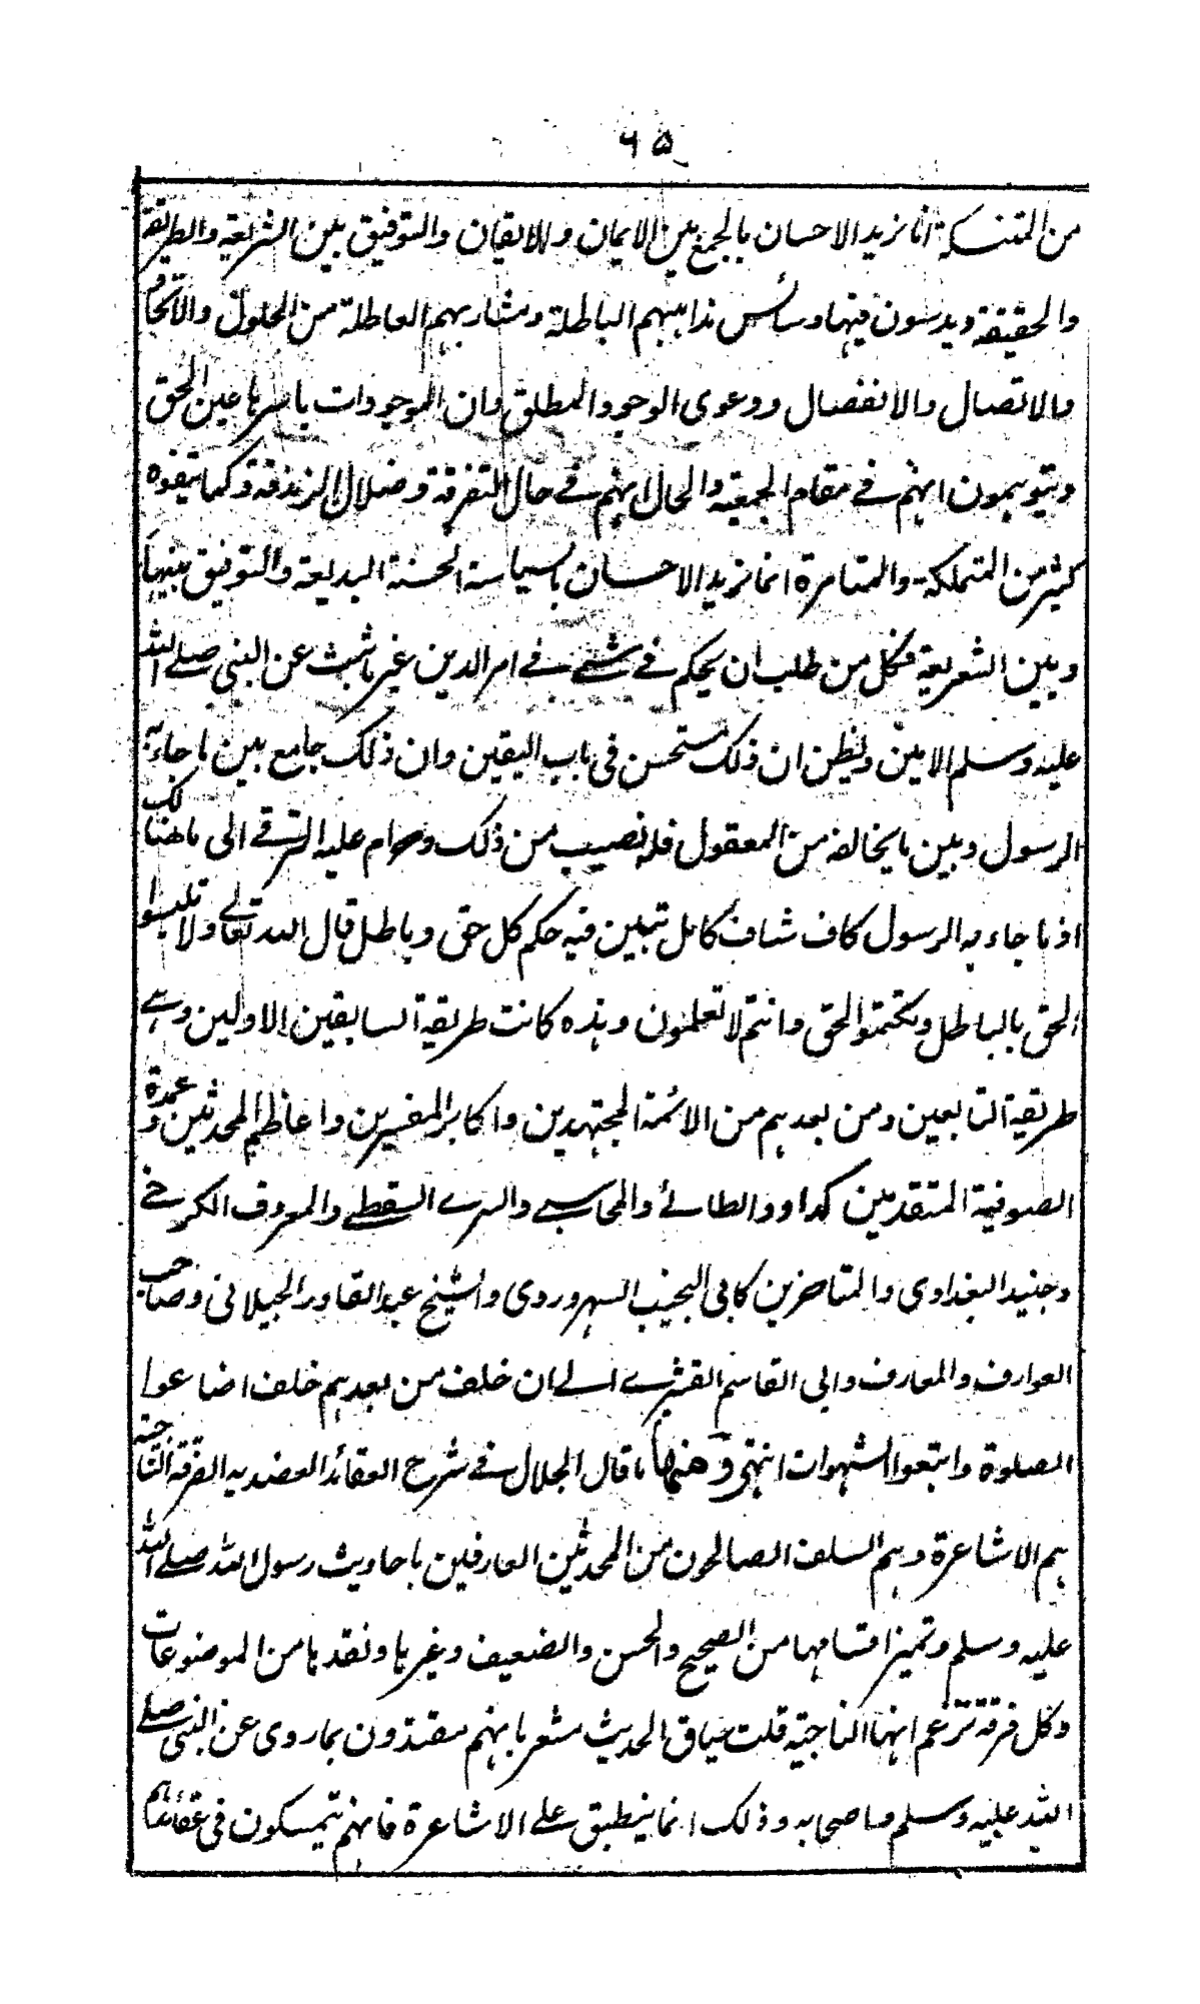 ٦٥
من المتنسكة انا نريد الاحسان بالجمع بين الايمان والايقان والتوفيق بين الشريعة والطريقة
والحقيقة ويدسون فيها دسائس مذاهبهم الباطلة ومشاربهم العاطلة من الحلول والاتحاد
والاتصال والانفصال ودعوى الوجود المطلق وان الموجودات باسرها عين الحق
ويتوهمون انهم في مقام الجمعية والحال انهم في حال التفرقة وضلال الزندقة وكما يتفوه
كثير من المتملكة والمتامرة انما نريد الاحسان بالسياسة الحسنة البديعة والتوفيق بينها
وبين الشريعة فكل من طلب ان يحكم في شئ في امر الدين غير ما ثبت عن النبي صلى الله
عليه وسلم الامين ويظن ان ذلك مستحسن في باب اليقين وان ذلك جامع بين ما جاء به
الرسول وبين ما يخالفه من المعقول فله نصيب من ذلك وحرام عليه الترقي الى ما هنالك
اذ ما جاء به الرسول كاف شاف كامل تبين فيه حكم كل حق وباطل قال الله تعالى ولا تلبسوا
الحق بالباطل وتكتموا الحق وانتم لا تعلمون وهذه كانت طريقة السابقين الاولين وهي
طريقة التابعين ومن بعدهم من الائمة المجتهدين واكابر المفسرين واعاظم المحدثين وعمدة
الصوفية المتقدمين كداود الطائي والمحاسبي والسري السقطي والمعروف الكرخي
وجنيد البغدادي والمتاخرين كابي النجيب السهروردي والشيخ عبد القادر الجيلاني وصاحب
العوارف والمعارف وابي القاسم القشيري الى ان خلف من بعدهم خلف اضاعوا
الصلوة واتبعوا الشهوات انتهى ومنها ما قال الجلال في شرح العقائد العضدية الفرقة الناجية
هم الاشاعرة وهم السلف الصالحون من المحدثين العارفين باحاديث رسول الله صلى الله
عليه وسلم وتميز اقسامها من الصحيح والحسن والضعيف وغيرها ونقدها من الموضوعات
وكل فرقة تزعم انها الناجية قلت سياق الحديث مشعر بانهم مقتدون بما روى عن النبي صلى
الله عليه وسلم واصحابه وذلك انما ينطبق على الاشاعرة فانهم يتمسكون في عقائدهم